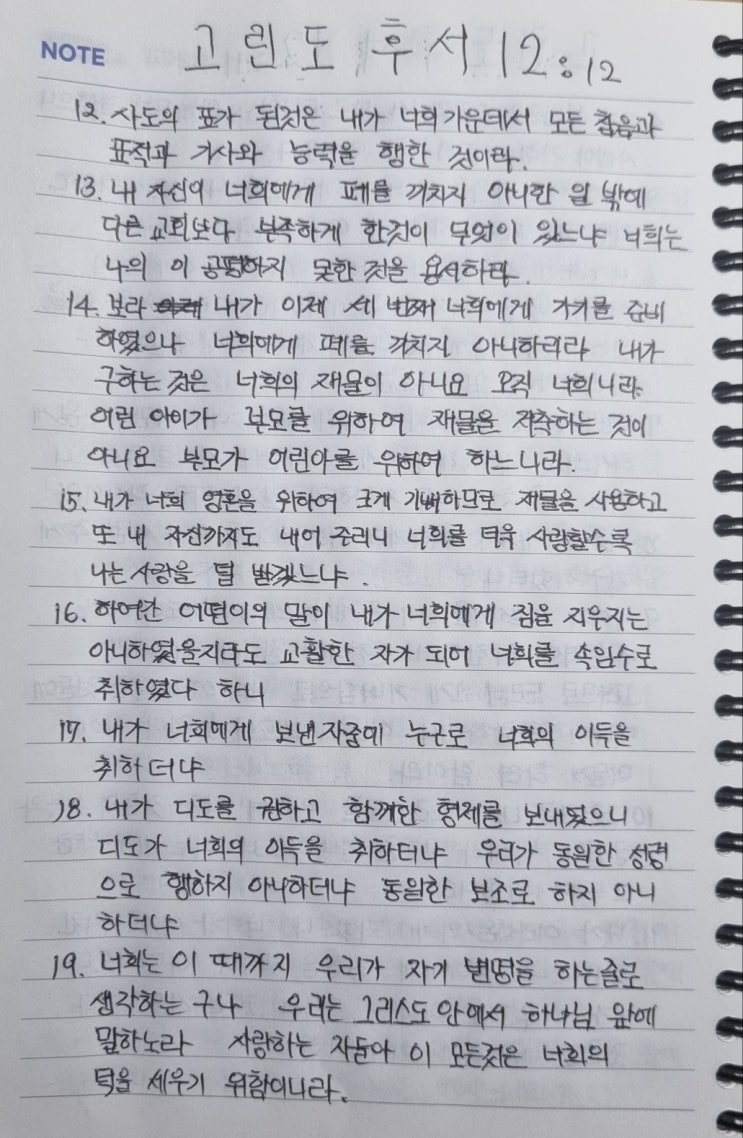 NOTE
고린도 후서 12:12
12. 사도의 표가 된것은 내가 너희 가운데서 모든 참음과
표적과 기사와 능력을 행한 것이라.
13. 내 자신이 너희에게 폐를 끼치지 아니한 일 밖에
다른 교회보다 부족하게 한것이 무엇이 있느냐 너희는
나의 이 공평하지 못한 것을 용서하라.
14. 보라 내가 이제 세 번째 너희에게 가기를 준비
하였으나 너희에게 폐를 끼치지 아니하리라 내가
구하는 것은 너희의 재물이 아니요 오직 너희니라
어린 아이가 부모를 위하여 재물을 저축하는 것이
아니요 부모가 어린아를 위하여 하느니라.
15. 내가 너희 영혼을 위하여 크게 기뻐하므로 재물을 사용하고
또 내 자신까지도 내어 주리니 너희를 더욱 사랑할수록
나는 사랑을 덜 받겠느냐
16. 하여간 어떤이의 말이 내가 너희에게 짐을 지우지는
아니하였을지라도 교활한 자가 되어 너희를 속임수로
취하였다 하니
17. 내가 너희에게 보낸 자중에 누구로 너희의 이득을
취하더냐
18. 내가 디도를 권하고 함께한 형제를 보내었으니
디도가 너희의 이득을 취하더냐 우리가 동일한 성령
으로 행하지 아니하더냐 동일한 보조로 하지 아니
하더냐
19. 너희는 이 때까지 우리가 자기 변명을 하는줄로
생각하는 구나 우리는 그리스도 안에서 하나님 앞에
말하노라 사랑하는 자들아 이 모든것은 너희의
덕을 세우기 위함이니라.